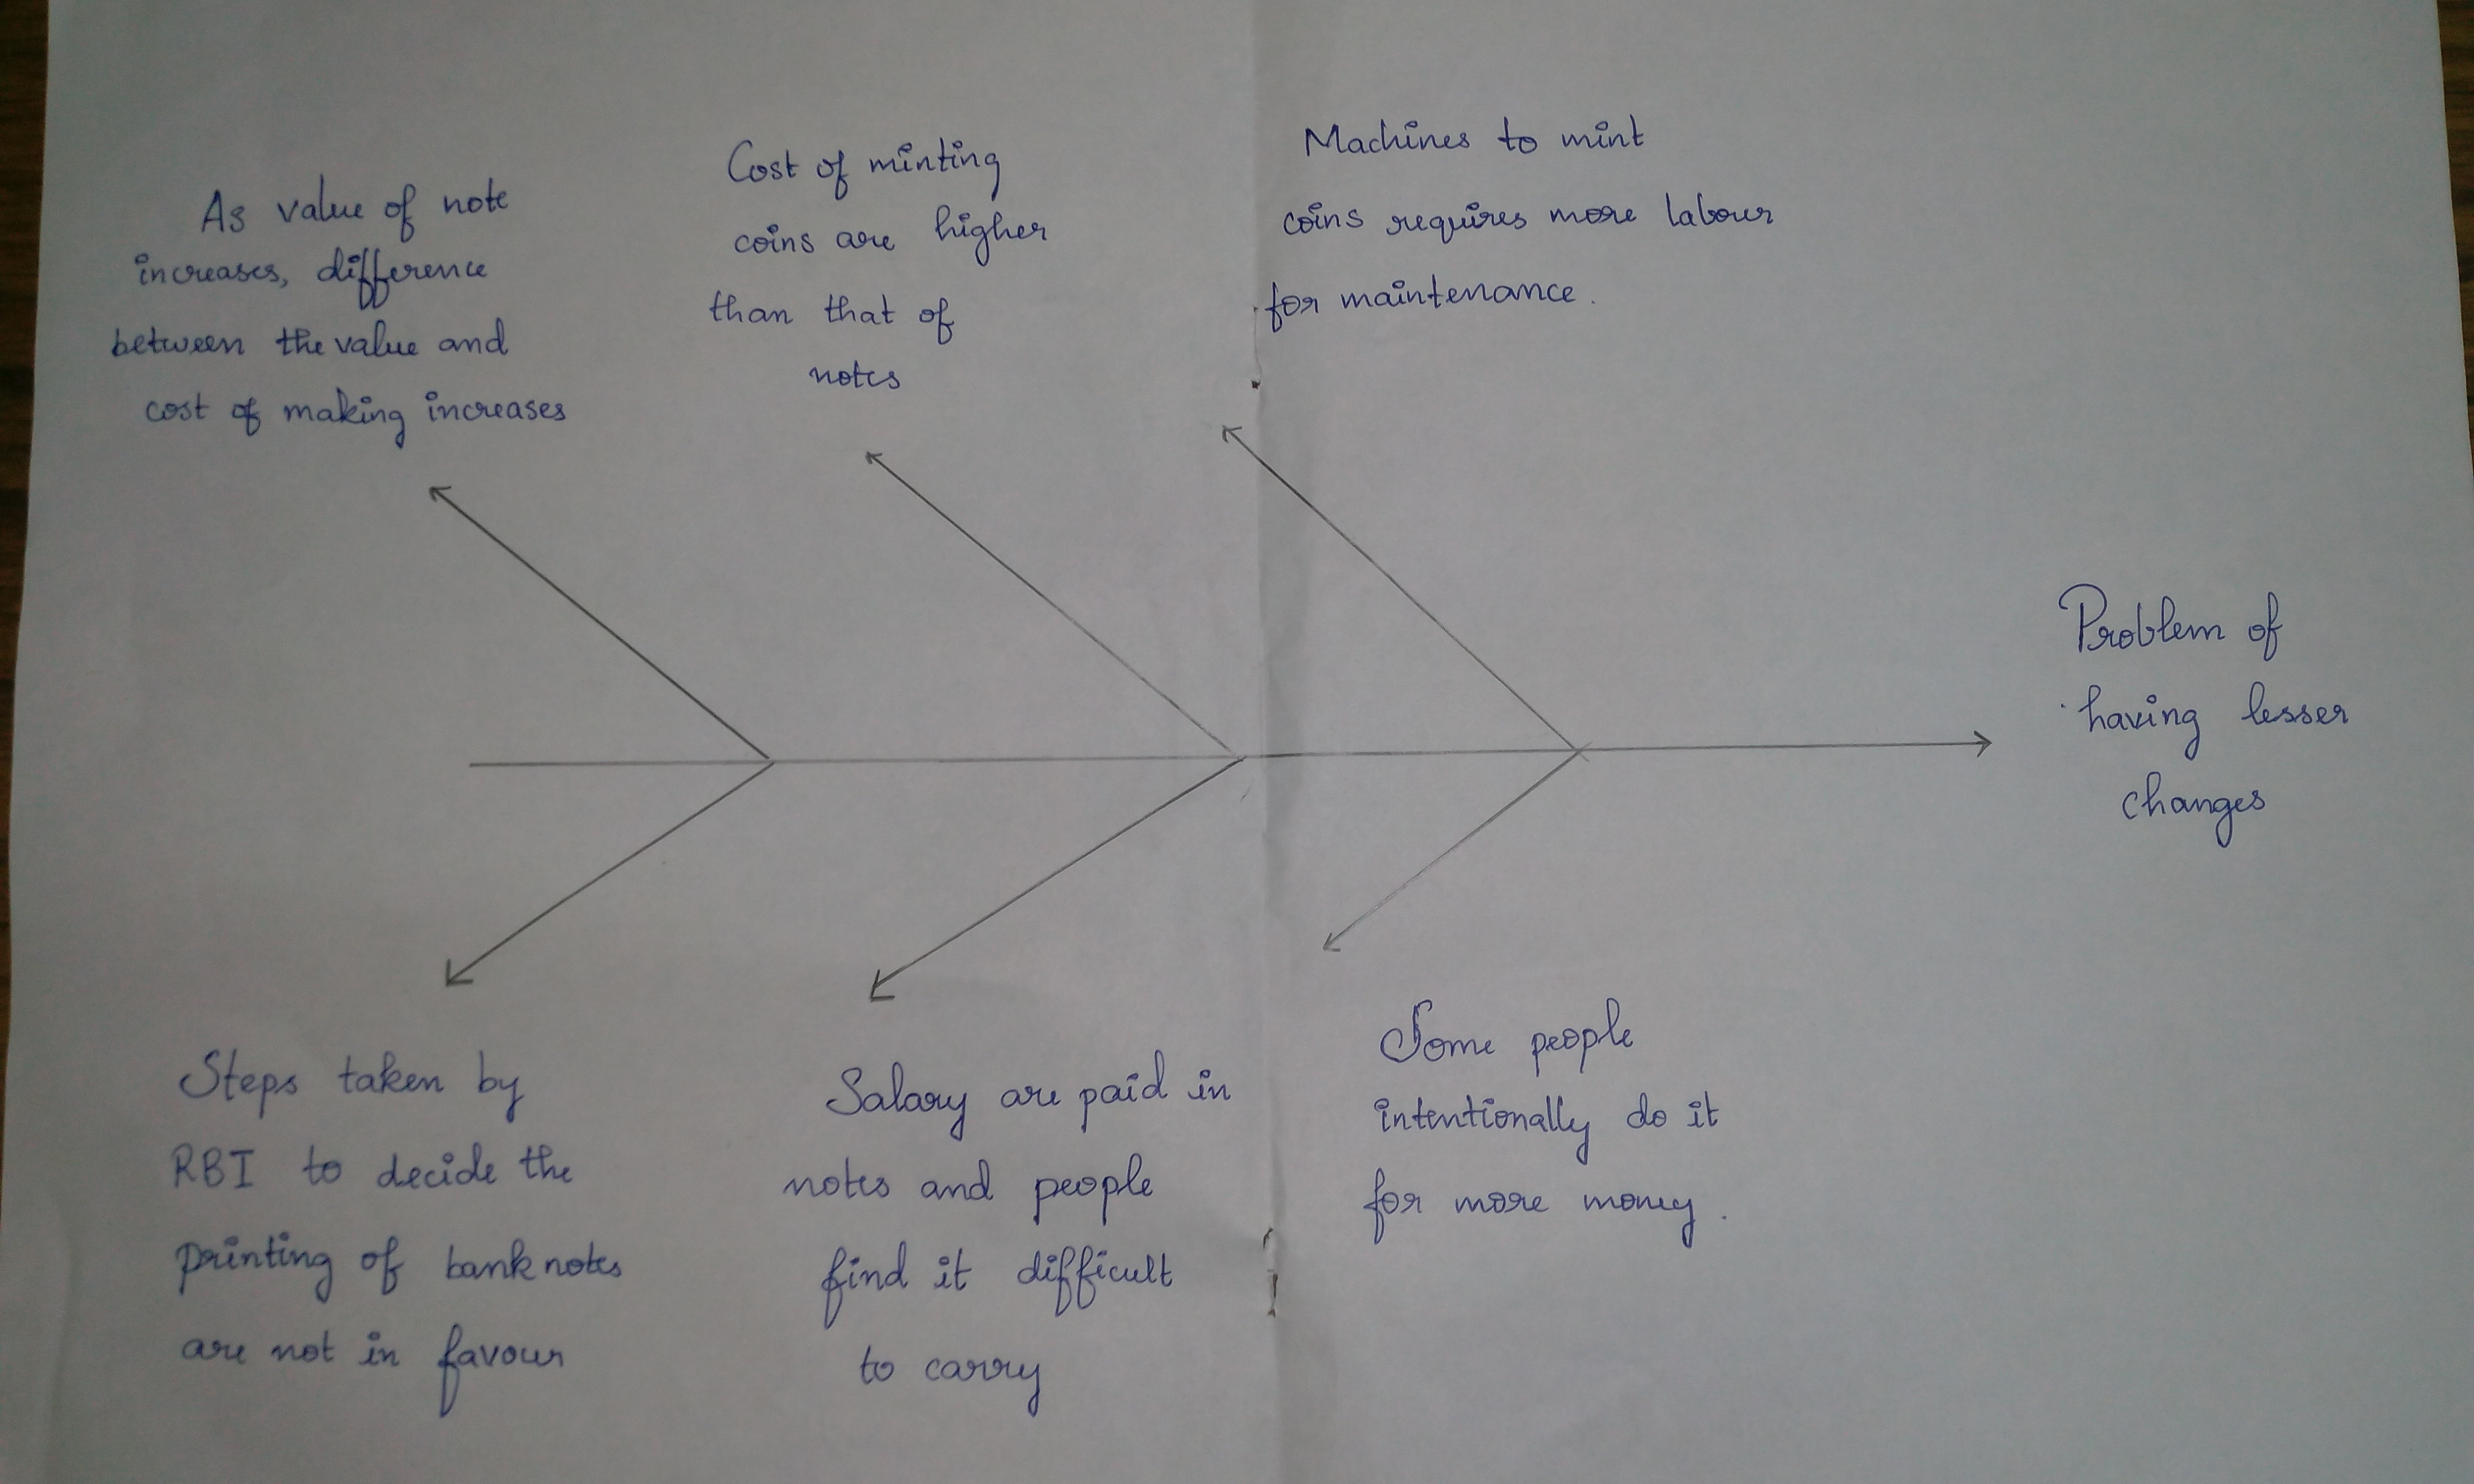 As value of note
increases, difference
between the value and
cost of making increases
Cost of minting
coins are higher
than that of
notes
Machines to mint
coins requires more labour
for maintenance.
Problem of
having lesser
changes
Steps taken by
RBI to decide the
printing of bank notes
are not in favour
Salary are paid in
notes and people
find it difficult
to carry
Some people
intentionally do it
for more money.